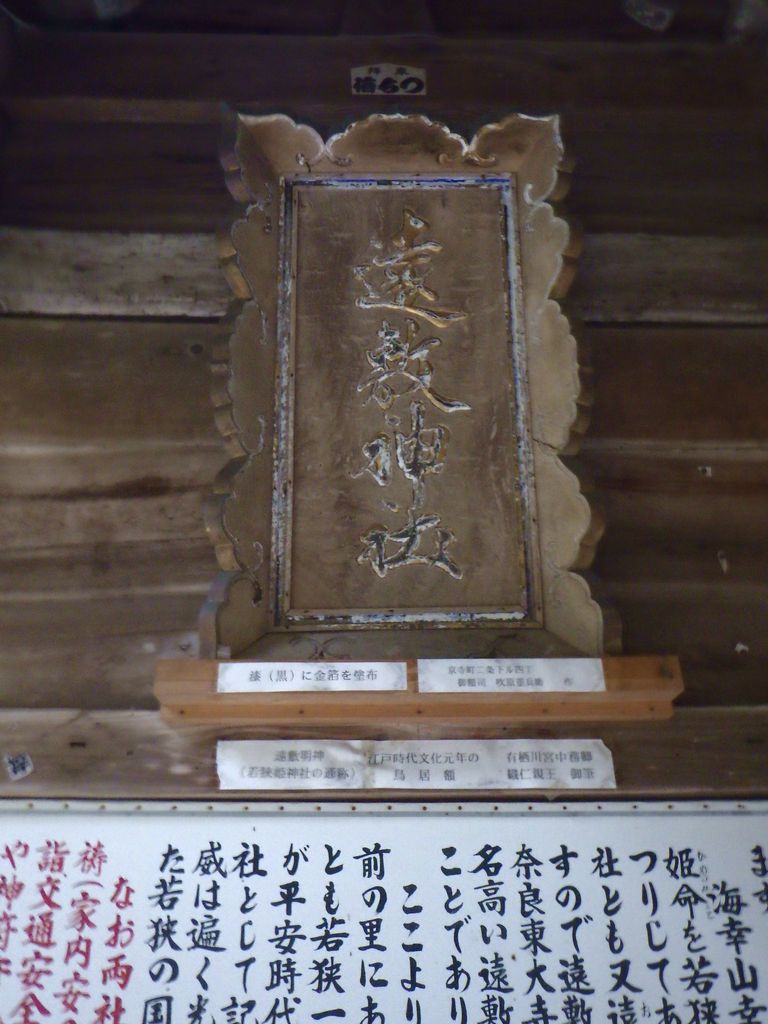 遠敷神社
漆（黒）に金箔を塗布
京寺町二条下ル四丁
作
遠敷明神
（若狭姫神社の通称）
江戸時代文化元年の
鳥居額
有栖川宮中務卿
織仁親王 御筆
ます
海幸山幸
姫命を若狭
つりしてあ
社とも又遠
すので遠敷
奈良東大寺
名高い遠敷
ことであり
ここより
前の里にあ
とも若狭一
が平安時代
社として記
威は遍く光
た若狭の国
なお両社
祷（家内安
詣交通安全
や神符